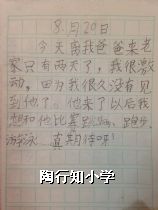 8.月20日
今天离我爸爸来老
家只有两天了，我很激
动，因为我很久没有见
到他了。他来了以后我
想和他比赛跑步
游泳，真期待呀！
陶行知小学